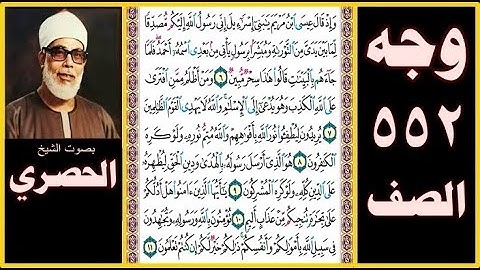 وجه
٥٥٢
الصف
بصوت الشيخ
الحصري
وَإِذْ قَالَ عِيسَى ابْنُ مَرْيَمَ يَٰبَنِىٓ إِسْرَٰٓءِيلَ إِنِّى رَسُولُ ٱللَّهِ إِلَيْكُم مُّصَدِّقًا
لِّمَا بَيْنَ يَدَىَّ مِنَ ٱلتَّوْرَىٰةِ وَمُبَشِّرًۢا بِرَسُولٍ يَأْتِى مِنۢ بَعْدِى ٱسْمُهُۥٓ أَحْمَدُ فَلَمَّا
جَآءَهُم بِٱلْبَيِّنَٰتِ قَالُوا۟ هَٰذَا سِحْرٌ مُّبِينٌ ٦ وَمَنْ أَظْلَمُ مِمَّنِ ٱفْتَرَىٰ
عَلَى ٱللَّهِ ٱلْكَذِبَ وَهُوَ يُدْعَىٰٓ إِلَى ٱلْإِسْلَٰمِ وَٱللَّهُ لَا يَهْدِى ٱلْقَوْمَ ٱلظَّٰلِمِينَ
٧ يُرِيدُونَ لِيُطْفِـُٔوا۟ نُورَ ٱللَّهِ بِأَفْوَٰهِهِمْ وَٱللَّهُ مُتِمُّ نُورِهِۦ وَلَوْ كَرِهَ
ٱلْكَٰفِرُونَ ٨ هُوَ ٱلَّذِىٓ أَرْسَلَ رَسُولَهُۥ بِٱلْهُدَىٰ وَدِينِ ٱلْحَقِّ لِيُظْهِرَهُۥ
عَلَى ٱلدِّينِ كُلِّهِۦ وَلَوْ كَرِهَ ٱلْمُشْرِكُونَ ٩ يَٰٓأَيُّهَا ٱلَّذِينَ ءَامَنُوا۟ هَلْ أَدُلُّكُمْ
عَلَىٰ تِجَٰرَةٍ تُنجِيكُم مِّنْ عَذَابٍ أَلِيمٍ ١٠ تُؤْمِنُونَ بِٱللَّهِ وَرَسُولِهِۦ وَتُجَٰهِدُونَ
فِى سَبِيلِ ٱللَّهِ بِأَمْوَٰلِكُمْ وَأَنفُسِكُمْ ذَٰلِكُمْ خَيْرٌ لَّكُمْ إِن كُنتُمْ تَعْلَمُونَ ١١